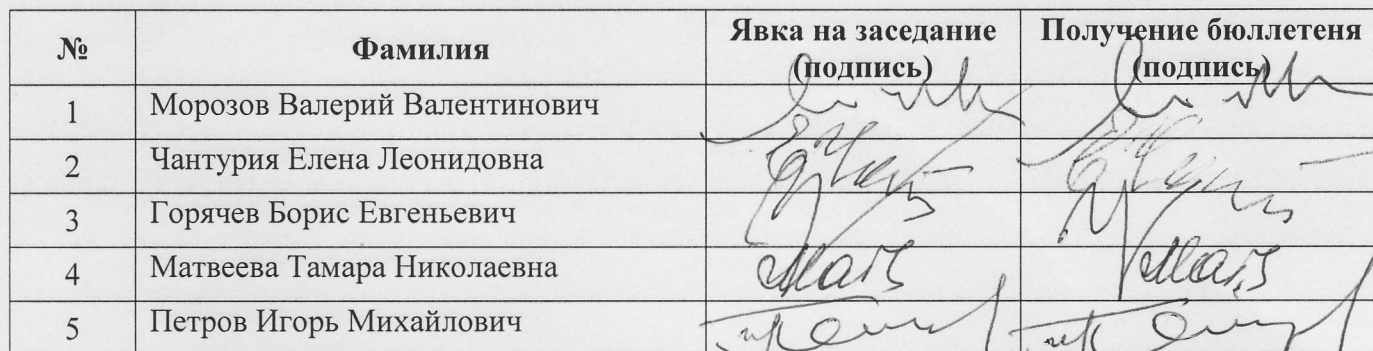 № Фамилия Явка на заседание (подпись) Получение бюллетеня (подпись)
1 Морозов Валерий Валентинович
2 Чантурия Елена Леонидовна
3 Горячев Борис Евгеньевич
4 Матвеева Тамара Николаевна
5 Петров Игорь Михайлович